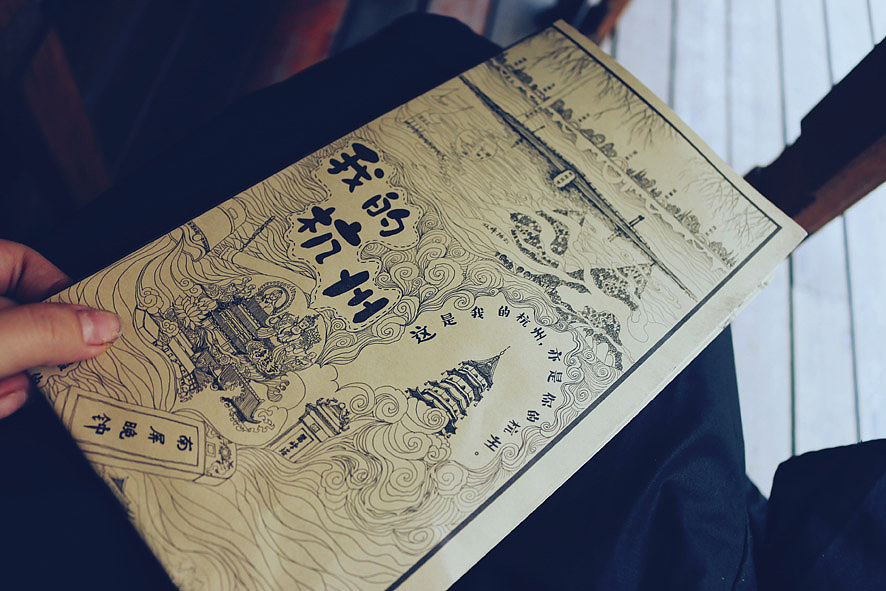 我的
杭州
这是我的杭州，亦是你的杭州。
南屏晚钟